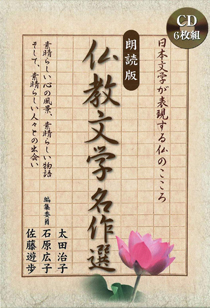 CD
6枚組
日本文学が表現する仏のこころ
朗読版
仏教文学名作選
素晴らしい心の風景、素晴らしい物語
そして、素晴らしい人々との出会い
編集委員
太田治子
石原広子
佐藤遊歩